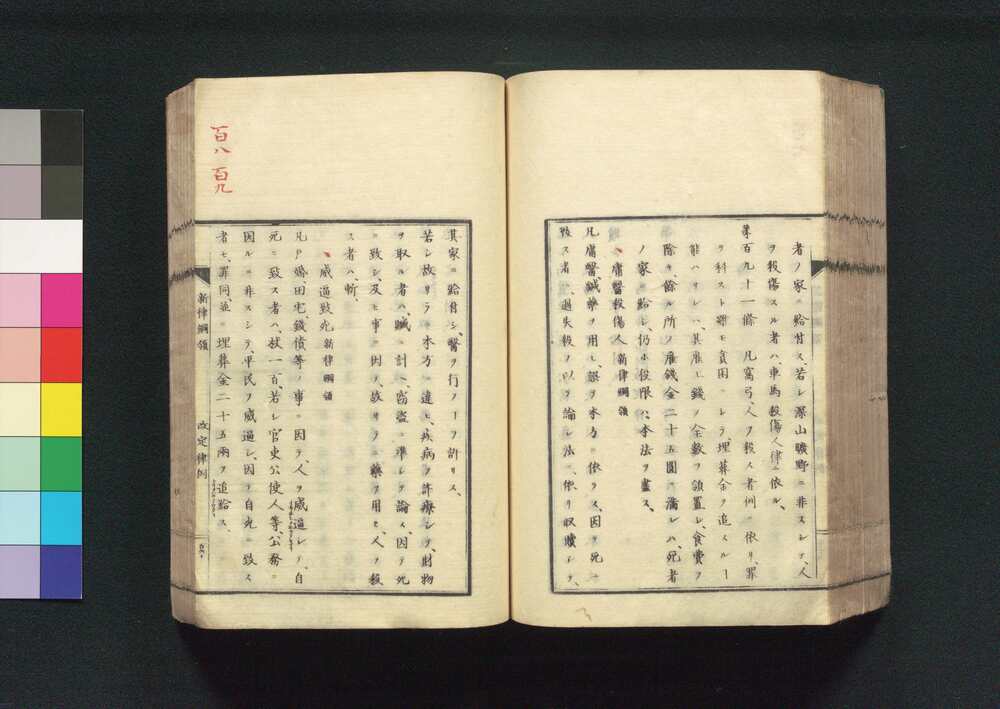 者ノ家ニ給付ス、若シ深山曠野ニ非スシテ、人
ヲ殺傷スル者ハ、車馬殺傷人律ニ依ル、
第百九十一條 凡窩弓、人ヲ殺ス者、例ニ依リ罪
ヲ科スト雖モ貧困ニシテ、埋葬金ヲ追スルヿ
能ハサレハ、其雇工錢ノ全數ヲ領置シ、食費ヲ
除キ、餘ル所ノ雇錢金二十五圓ニ滿レハ、死者
ノ家ニ給シ、仍ホ役限ハ本法ヲ盡ス、
庸醫殺傷人 新律綱領
凡庸醫、鍼藥ヲ用ヒ、誤テ本方ニ依ラス、因テ死ニ
致ス者、過失殺ヲ以テ論シ、法ニ依リ収贖シテ、
其家ニ給付シ、醫ヲ行フヿヲ許サス、
若シ故サラニ本方ニ違ヒ、疾病ヲ詐療シテ、財物
ヲ取ル者ハ、贓ニ計ヘ、窃盜ニ準シテ論ス、因テ死
ニ致シ、及ヒ事ニ因テ、故サラニ藥ヲ用ヒ、人ヲ殺
ス者ハ、斬、
威逼致死 新律綱領
凡戸婚田宅錢債等ノ事ニ因テ、人ヲ威逼シテ、自
死ニ致ス者ハ、杖一百、若シ官吏公使人等公務ニ
因ルニ非スシテ、平民ヲ威逼シ、因テ自死ニ致ス
者モ、罪同、並ニ埋葬金二十五兩ヲ追給ス、
新律綱領 改定律例
百八 百九